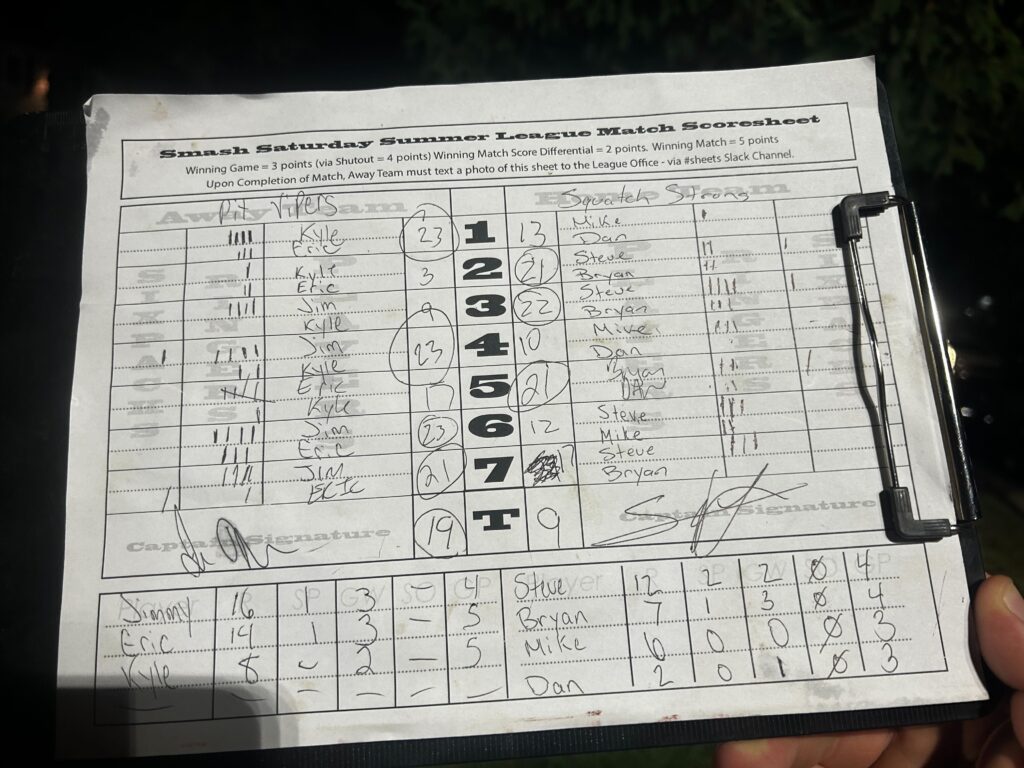 Smash Saturday Summer League Match Scoresheet
Winning Game = 3 points (via Shutout = 4 points) Winning Match Score Differential = 2 points. Winning Match = 5 points
Upon Completion of Match, Away Team must text a photo of this sheet to the League Office - via #sheets Slack Channel.
Away Team Pit Vipers Home Team Squatch Strong
Kyle 23 1 13 Mike
Eric Dan
Kyle 3 2 21 Steve
Eric Bryan
Jim 9 3 22 Steve
Kyle Bryan
Jim 23 4 10 Mike
Kyle Dan
Eric 17 5 21 Bryan
Kyle Dan
Jim 23 6 12 Steve
Eric Mike
Jim 21 7 17 Steve
Eric Bryan
Captain Signature 19 T 9 Captain Signature
Jimmy 16 1 3 — 4 Steve 12 2 2 0 4
Eric 14 1 3 — 5 Bryan 7 1 3 0 4
Kyle 8 2 — 5 Mike 6 0 0 0 3
— — — — — — Dan 2 0 1 0 3